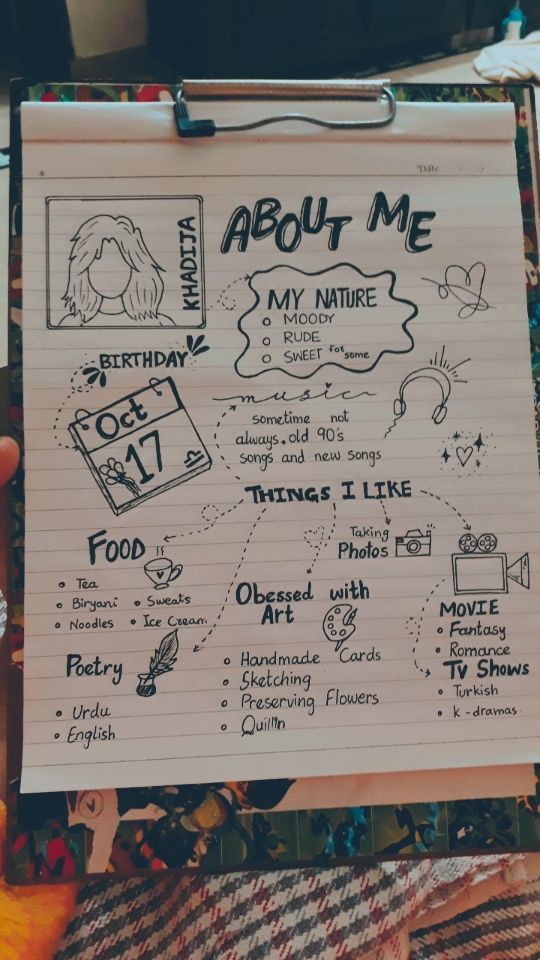 Date
ABOUT ME
KHADIJA
MY NATURE
MOODY
RUDE
SWEET for some
BIRTHDAY
Oct
17
music
sometime not
always, old 90's
songs and new songs
THINGS I LIKE
FOOD
Tea
Biryani
Sweats
Noodles
Ice Cream
Taking
Photos
Obessed with
Art
Handmade Cards
Sketching
Preserving Flowers
Quillin
MOVIE
Fantasy
Romance
TV Shows
Turkish
K-dramas
Poetry
Urdu
English